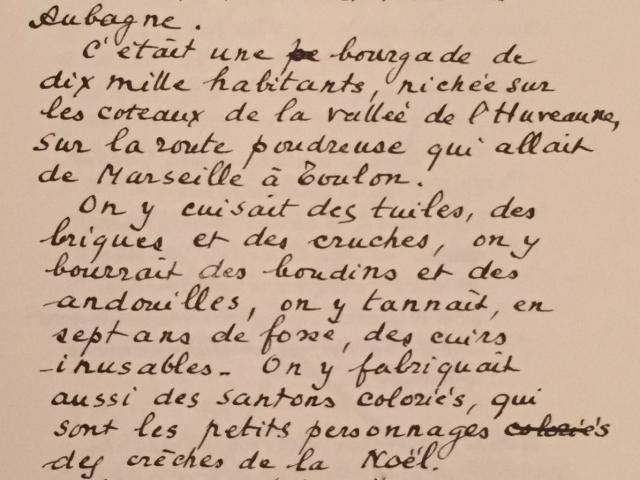 Aubagne.
C'était une pe bourgade de
dix mille habitants, nichée sur
les coteaux de la vallée de l'Huveaune,
sur la route poudreuse qui allait
de Marseille à Toulon.
On y cuisait des tuiles, des
briques et des cruches, on y
bourrait des boudins et des
andouilles, on y tannait, en
sept ans de fosse, des cuirs
inusables. On y fabriquait
aussi des santons coloriés, qui
sont les petits personnages coloriés
des crèches de la Noël.